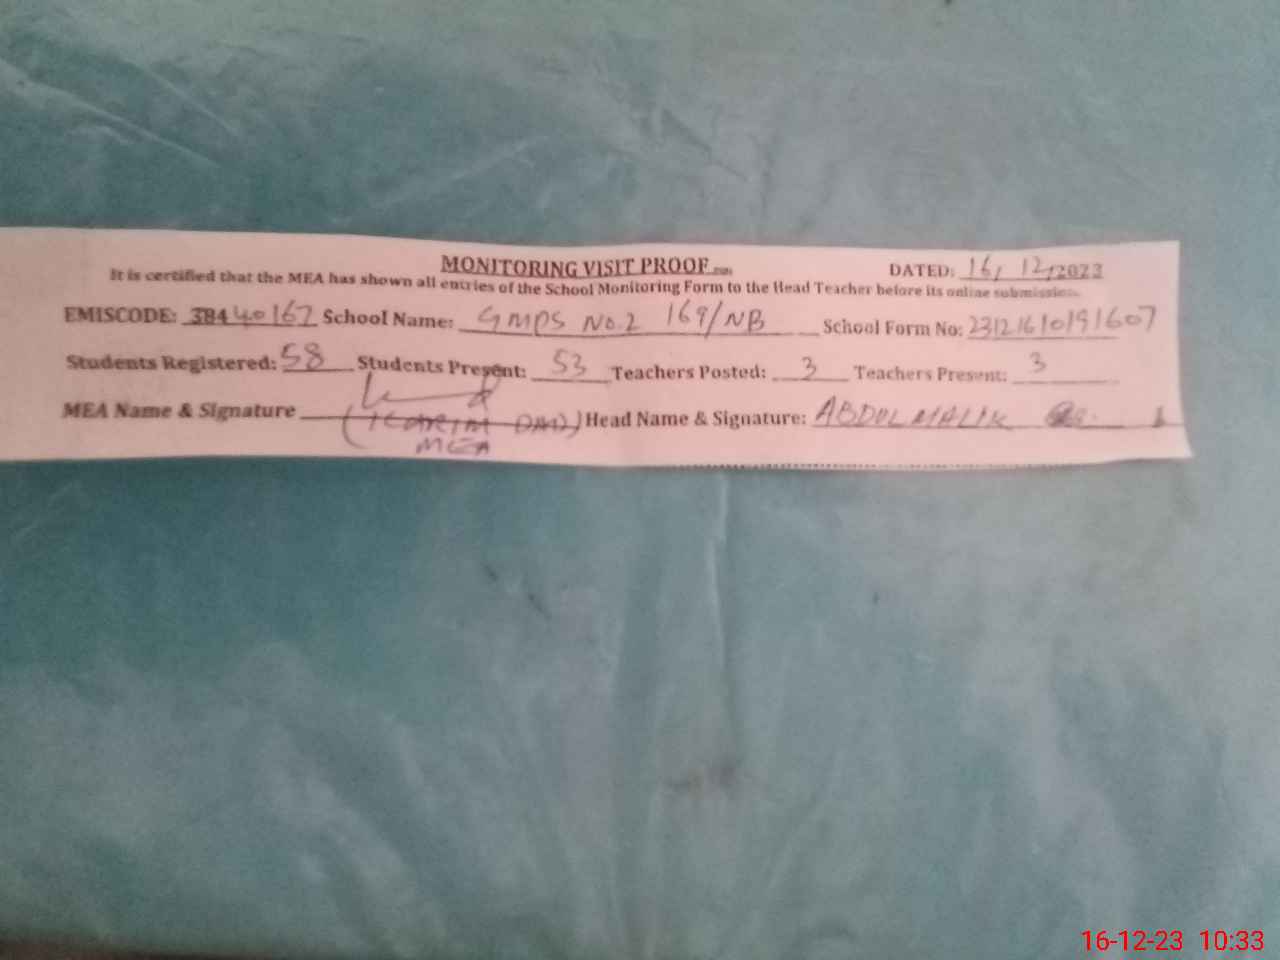 MONITORING VISIT PROOF
DATED: 16/ 12/2023
It is certified that the MEA has shown all entries of the School Monitoring Form to the Head Teacher before its online submission.
EMISCODE: 38440167 School Name: GMPS No.2 169/NB School Form No: 23121610191607
Students Registered: 58 Students Present: 53 Teachers Posted: 3 Teachers Present: 3
MEA Name & Signature (KARIM DAD) Head Name & Signature: ABDUL MALIK
MEA
16-12-23 10:33